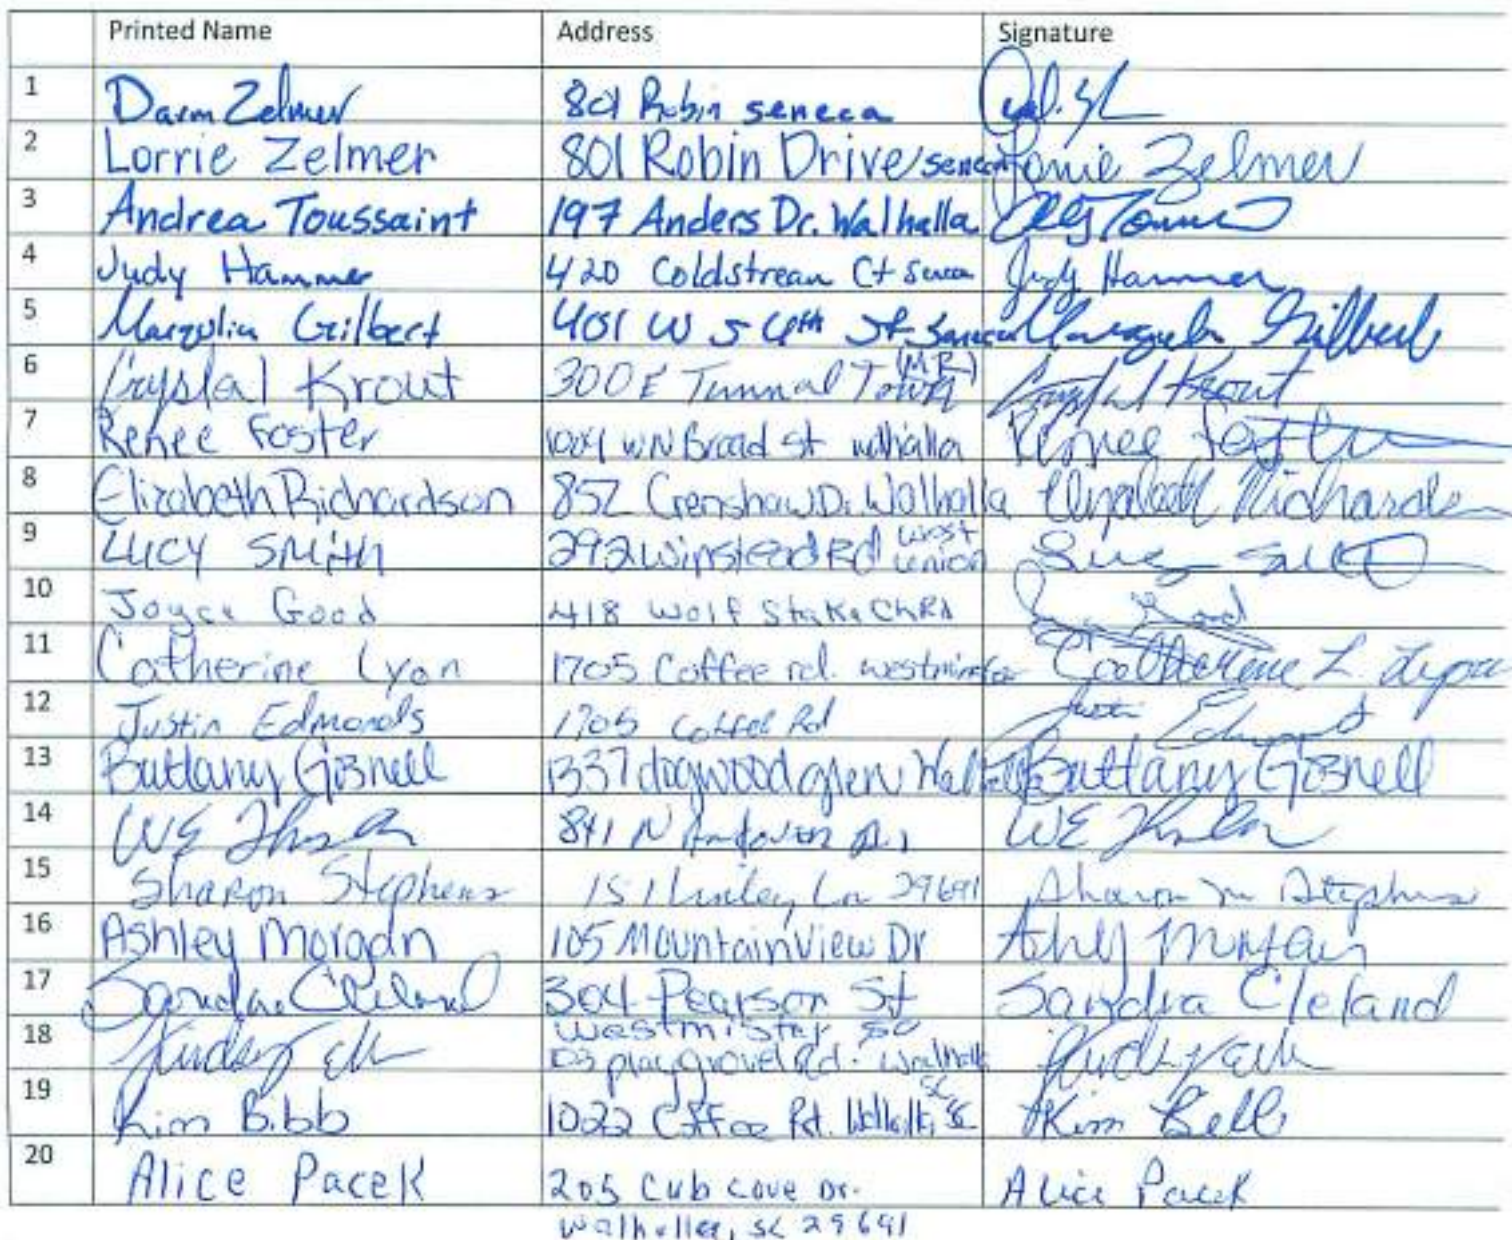 Printed Name Address Signature
1 Darm Zelmer 801 Robin seneca
2 Lorrie Zelmer 801 Robin Drive seneca Lorrie Zelmer
3 Andrea Toussaint 197 Anders Dr. Walhalla
4 Judy Hammer 420 Coldstream Ct Seneca Judy Hammer
5 Gilbert 401 W S 4th St Seneca Gilbert
(MR)
6 Crystal Krout 300 E Tunnal Town Crystal Krout
7 Renee Foster 1004 W N Broad St walhalla Renee Foster
8 Elizabeth Richardson 852 Crenshaw Dr Walhalla Elizabeth Richardson
West
9 Lucy Smith 292 Winstead Rd Union
10 Joyce Good 418 Wolf Stake Ch Rd Good
11 Catherine Lyon 1705 Coffee rd. westminster Catherine L. Lyon
12 Justin Edmonds 1705 Coffee Rd Justin
13 Brittany Gosnell 1337 dogwood glen Brittany Gosnell
14 WE 841 N WE
15 Sharon Stephens Ln 29691 Sharon m Stephens
16 Ashley Morgan 105 Mountain View Dr Ashley Morgan
17 Sandra Cleland 304 Pearson St Sandra Cleland
Westmister SC
18 Rd. Walhalla
SC
19 Kim Bibb 1022 Coffee Rd. Walhalla, SC Kim
20 Alice Pacek 205 Cub Cove Dr. Alice Pacek
Walhalla, SC 29691